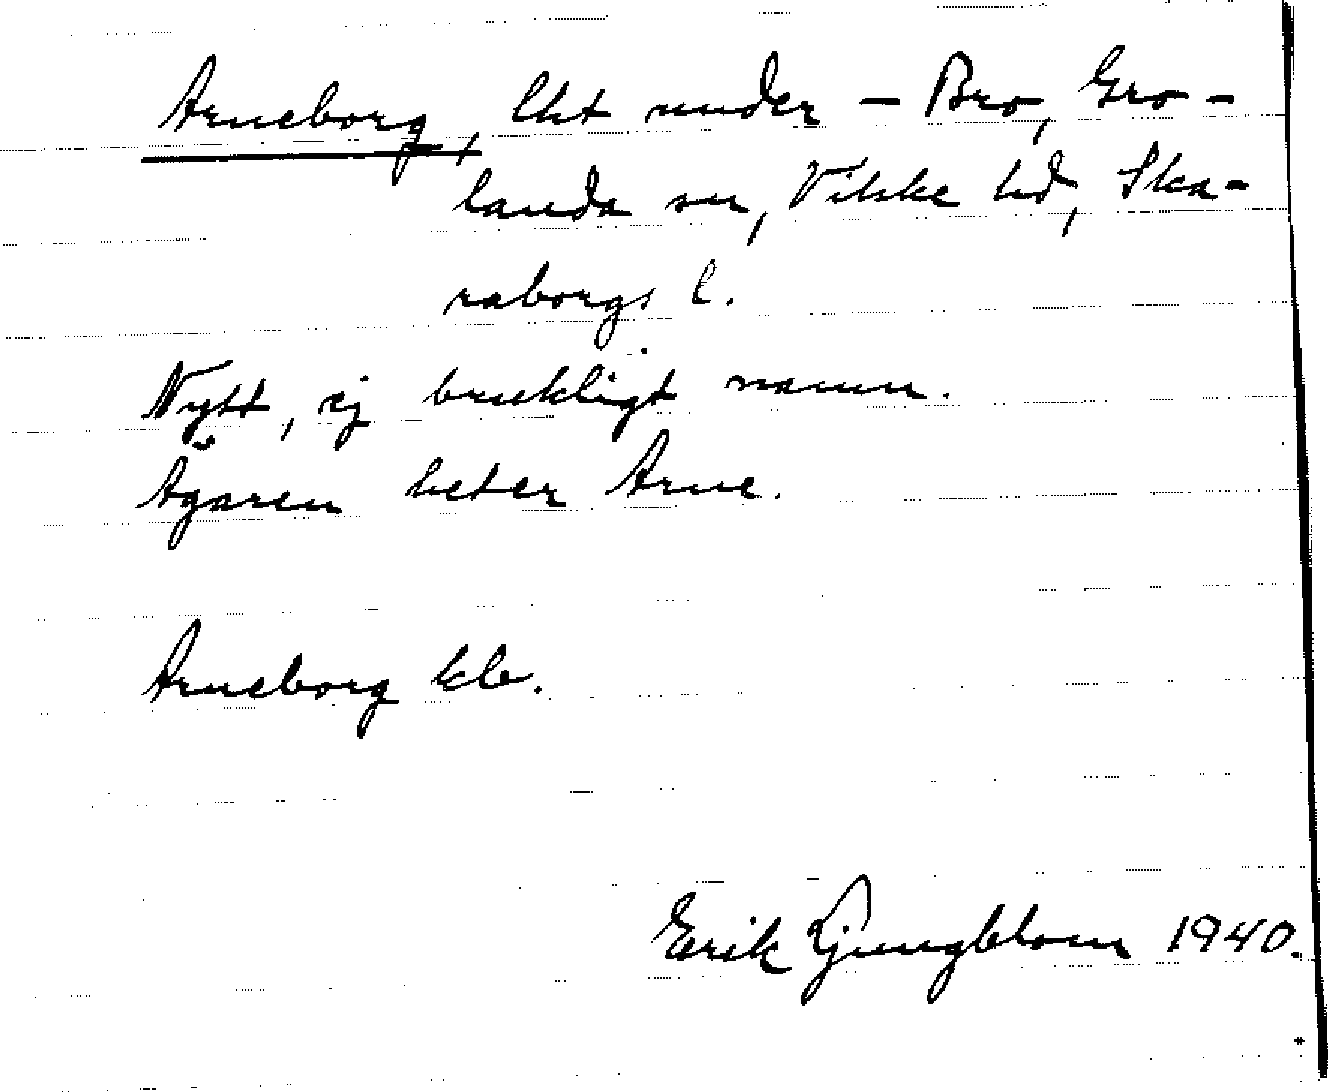 Arneborg, lht under – Bro, Gro-
landa sn, Vilske hd, Ska-
raborgs l.
Nytt, ej brukligt namn.
Ägaren heter Arne.
Arneborg
Erik Ljungblom 1940.